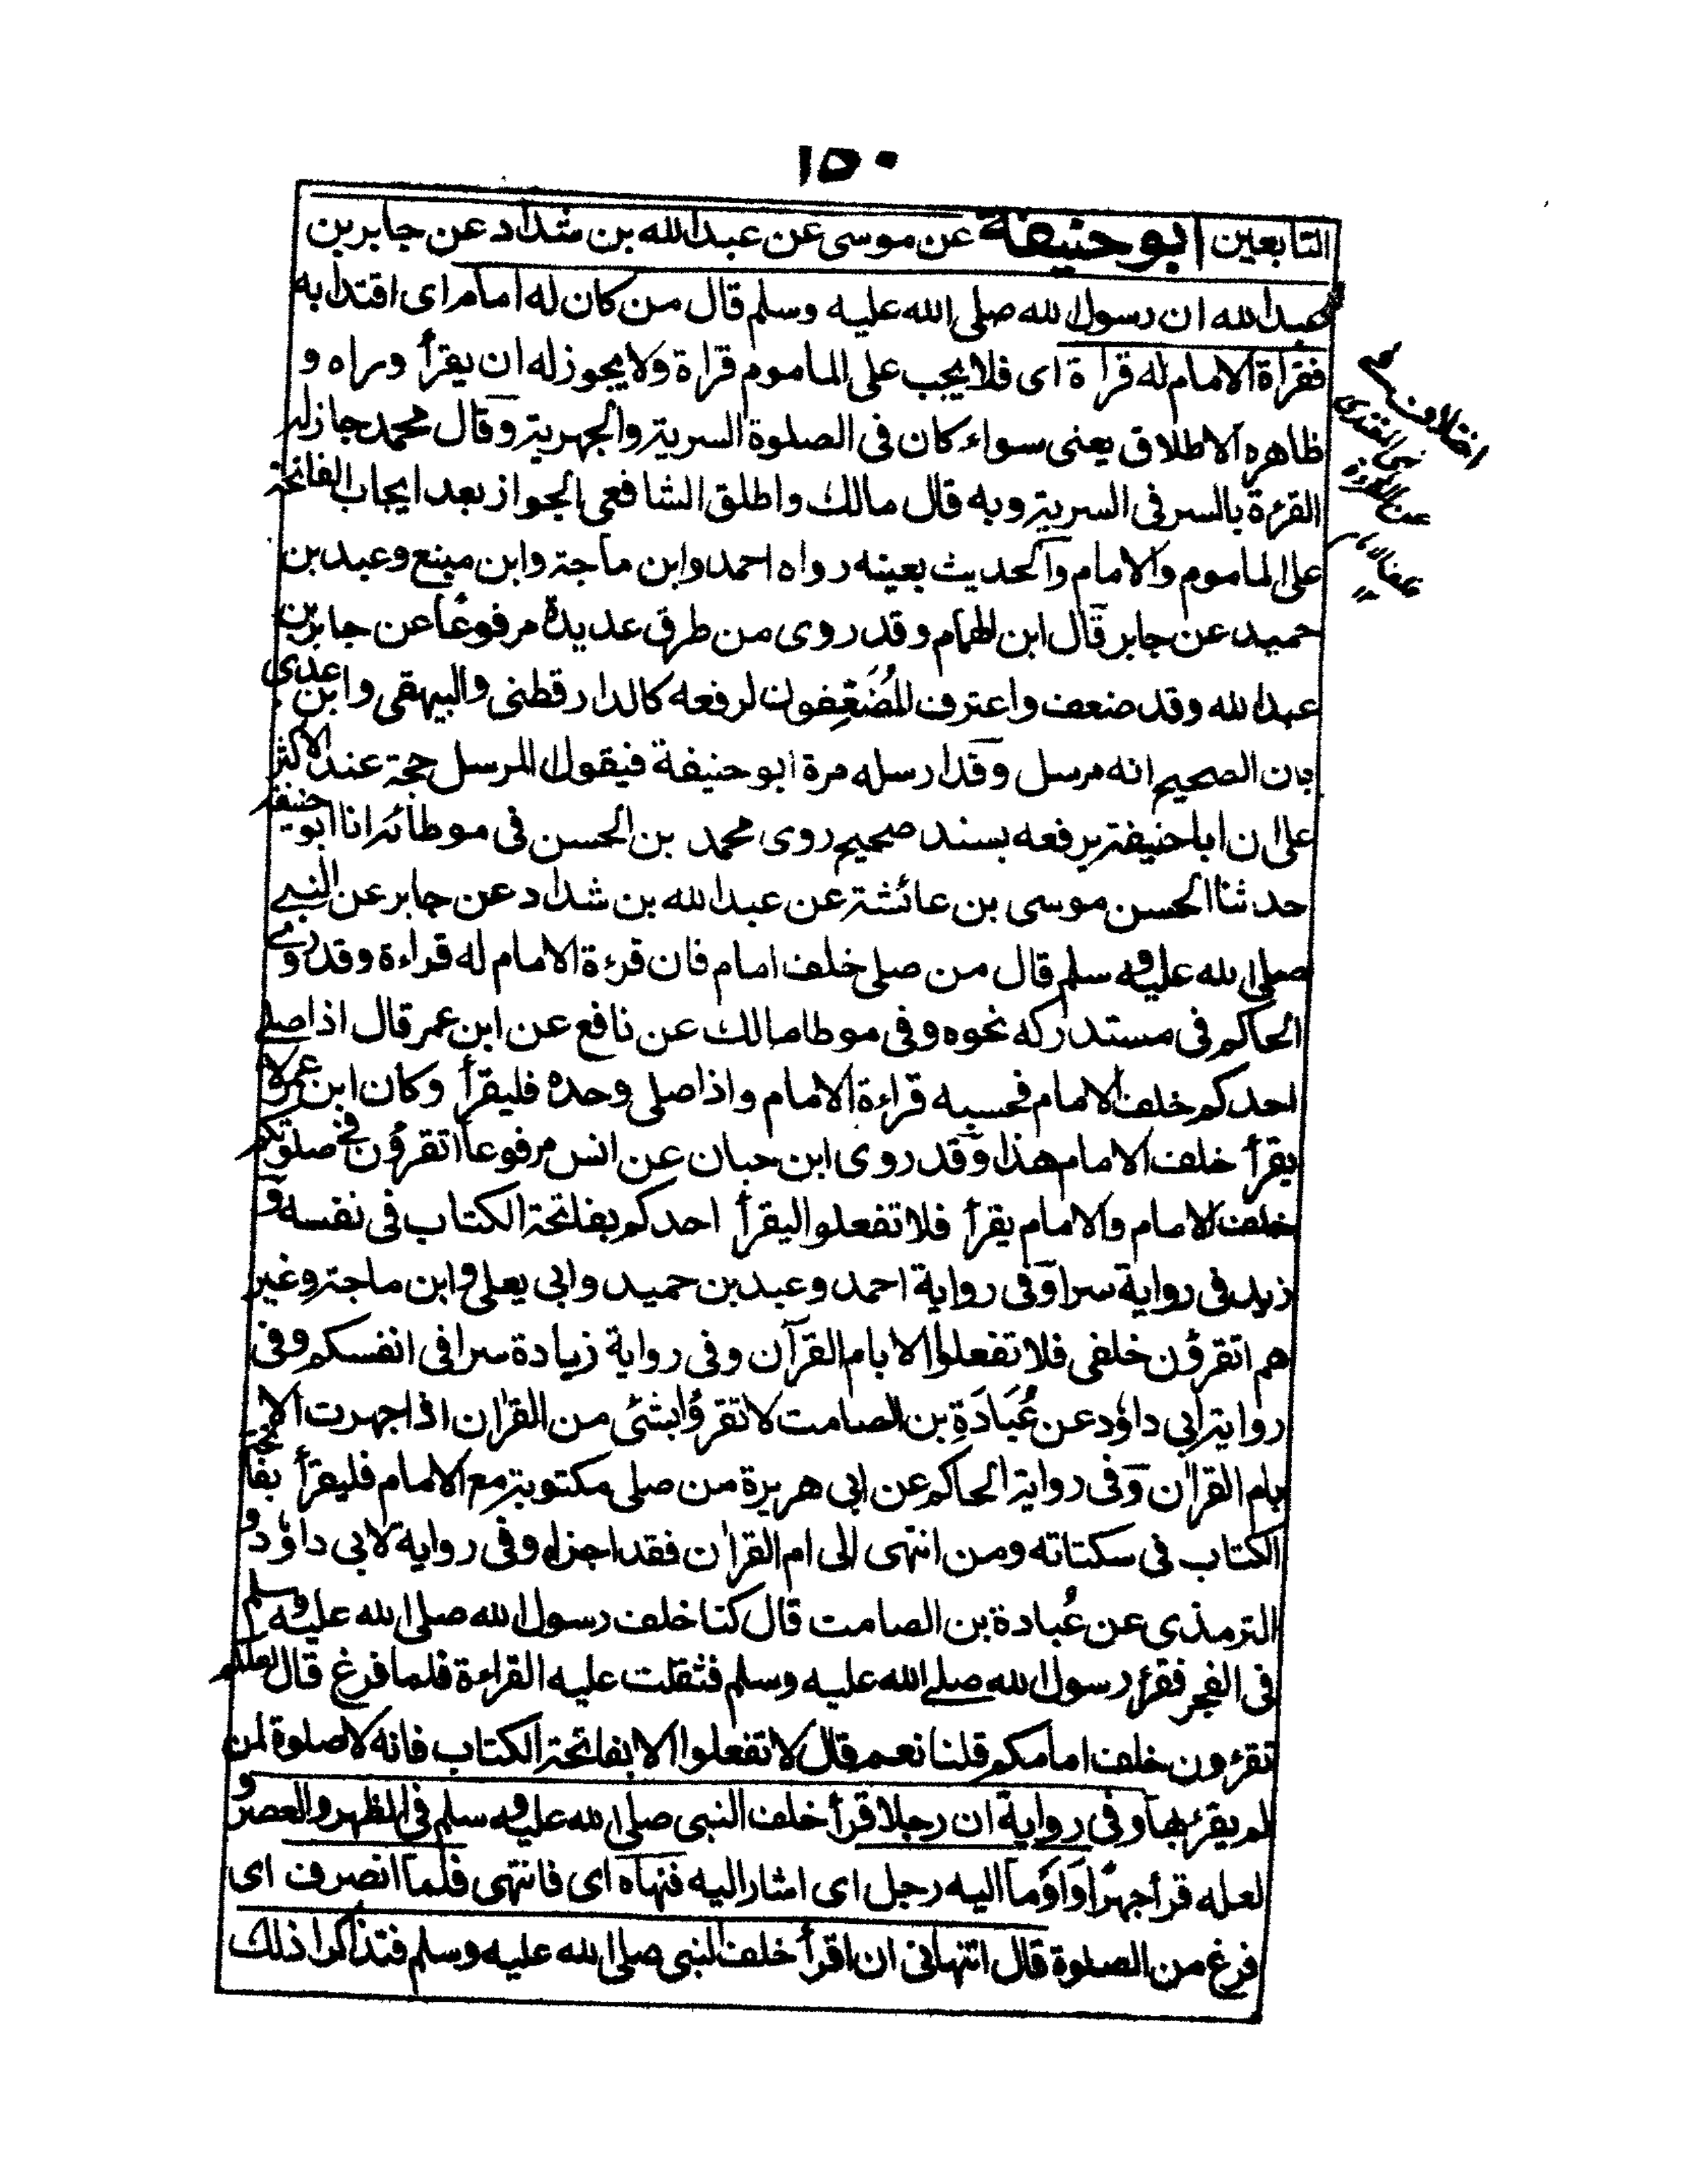 ١٥٠
التابعين ابو حنيفة عن موسى عن عبد الله بن شداد عن جابر بن
عبد الله ان رسول الله صلى الله عليه وسلم قال من كان له امام اى اقتدا به
فقراة الامام له قراة اى فلا يجب على الماموم قراة ولا يجوز له ان يقرأ وراه و
ظاهره الاطلاق يعنى سواء كان فى الصلوة السرية والجهرية وقال محمد جاز له
القرءة بالسر فى السرية وبه قال مالك واطلق الشافعى الجواز بعد ايجاب الفاتحة
على الماموم والامام والحديث بعينه رواه احمد وابن ماجة وابن مينع وعبد بن
حميد عن جابر قال ابن الهمام وقد روى من طرق عديدة مرفوعًا عن جابر بن
عبد الله وقد ضعف واعترف المُضَعِّفون لرفعه كالدارقطنى والبيهقى وابن عدى
بان الصحيح انه مرسل وقد ارسله مرة ابو حنيفة فيقول المرسل حجة عند الاكثر
على ان ابا حنيفة يرفعه بسند صحيح روى محمد بن الحسن فى موطائه انا ابو حنيفة
حدثنا الحسن موسى بن عائشة عن عبد الله بن شداد عن جابر عن النبى
صلى الله عليه وسلم قال من صلى خلف امام فان قرءة الامام له قراءة وقد روى
الحاكم فى مستدركه نحوه وفى موطا مالك عن نافع عن ابن عمر قال اذا صلى
احدكم خلف الامام فحسبه قراءة الامام واذا صلى وحده فليقرأ وكان ابن عمر لا
يقرأ خلف الامام هذا وقد روى ابن حبان عن انس مرفوعا اتقرؤن فى صلوتكم
خلف الامام والامام يقرأ فلا تفعلوا ليقرأ احدكم بفاتحة الكتاب فى نفسه و
زيد فى رواية سرا وفى رواية احمد وعبد بن حميد وابى يعلى وابن ماجة وغير
هم اتقرؤن خلفى فلا تفعلوا الا بام القرآن وفى رواية زيادة سرا فى انفسكم وفى
رواية ابى داؤد عن عُبَادَةِ بن الصامت لا تقرؤا بشئى من القران اذا جهرت الا
بام القران وفى رواية الحاكم عن ابى هريرة من صلى مكتوبة مع الامام فليقرأ بفاتحة
الكتاب فى سكتاته ومن انتهى الى ام القران فقد اجزاه وفى رواية لابى داؤد و
الترمذى عن عُبادة بن الصامت قال كنا خلف رسول الله صلى الله عليه وسلم
فى الفجر فقرء رسول الله صلى الله عليه وسلم فثقلت عليه القراءة فلما فرغ قال لعلكم
تقرءون خلف امامكم قلنا نعم قال لا تفعلوا الا بفاتحة الكتاب فانه لا صلوة لمن
لم يقرء بها وفى رواية ان رجلا قرأ خلف النبى صلى الله عليه وسلم فى الظهر والعصر و
لعله قرأ جهرًا واَوْمَأ اليه رجل اى اشار اليه فنهاه اى فانتهى فلما انصرف اى
فرغ من الصلوة قال اتنهانى ان اقرأ خلف النبى صلى الله عليه وسلم فتذاكرا ذلك